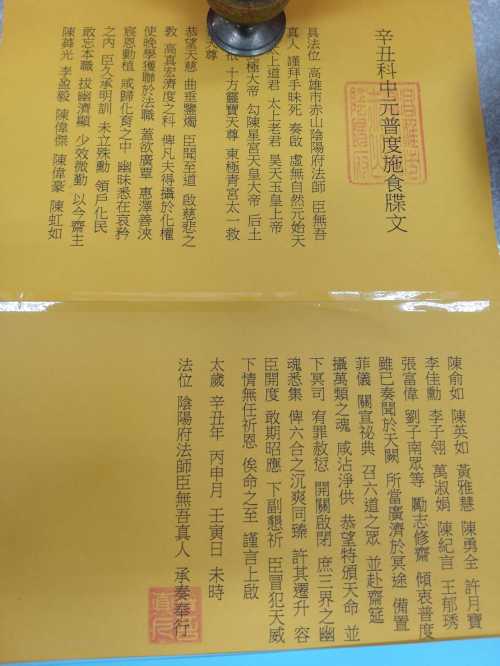 辛丑科中元普度施食牒文
具法位 高雄市赤山陰陽府法師 臣無吾
真人 謹拜手昧死 奏啟 虛無自然元始天
太上道君 太上老君 昊天玉皇上帝
極大帝 勾陳星宮天皇大帝 后土
十方靈寶天尊 東極青宮太一救
天尊
恭望天慈 曲垂鑒燭 臣聞至道 啟慈悲之
教 高真宏濟度之科 俾凡夫得攝於化權
使晚學獲聯於法職 蓋欲廣覃 惠澤善浹
宸恩動植 咸歸化育之中 幽昧悉在哀矜
之內 臣久承明訓 未立殊勳 領戶化民
敢忘本職 拔幽濟顯 少效微勤 以今齋主
陳羿光 李盈毅 陳偉傑 陳偉豪 陳虹如
陳俞如 陳英如 黃雅慧 陳勇全 許月寶
李佳勳 李子翎 萬淑娟 陳紀言 王郁琇
張富偉 劉子南眾等 勵志修齋 傾衷普度
雖已奏聞於天闕 所當廣濟於冥途 備置
菲儀 關宣祕典 召六道之眾 並赴齋筵
攝萬類之魂 咸沾淨供 恭望特頒天命 並
下冥司 宥罪赦愆 開關啟閉 庶三界之幽
魂悉集 俾六合之沉爽同臻 許其遷升 容
臣開度 敢期昭應 下副懇祈 臣冒犯天威
下情無任祈恩 俟命之至 謹言上啟
太歲 辛丑年 丙申月 壬寅日 未時
法位 陰陽府法師臣無吾真人 承奏奉行